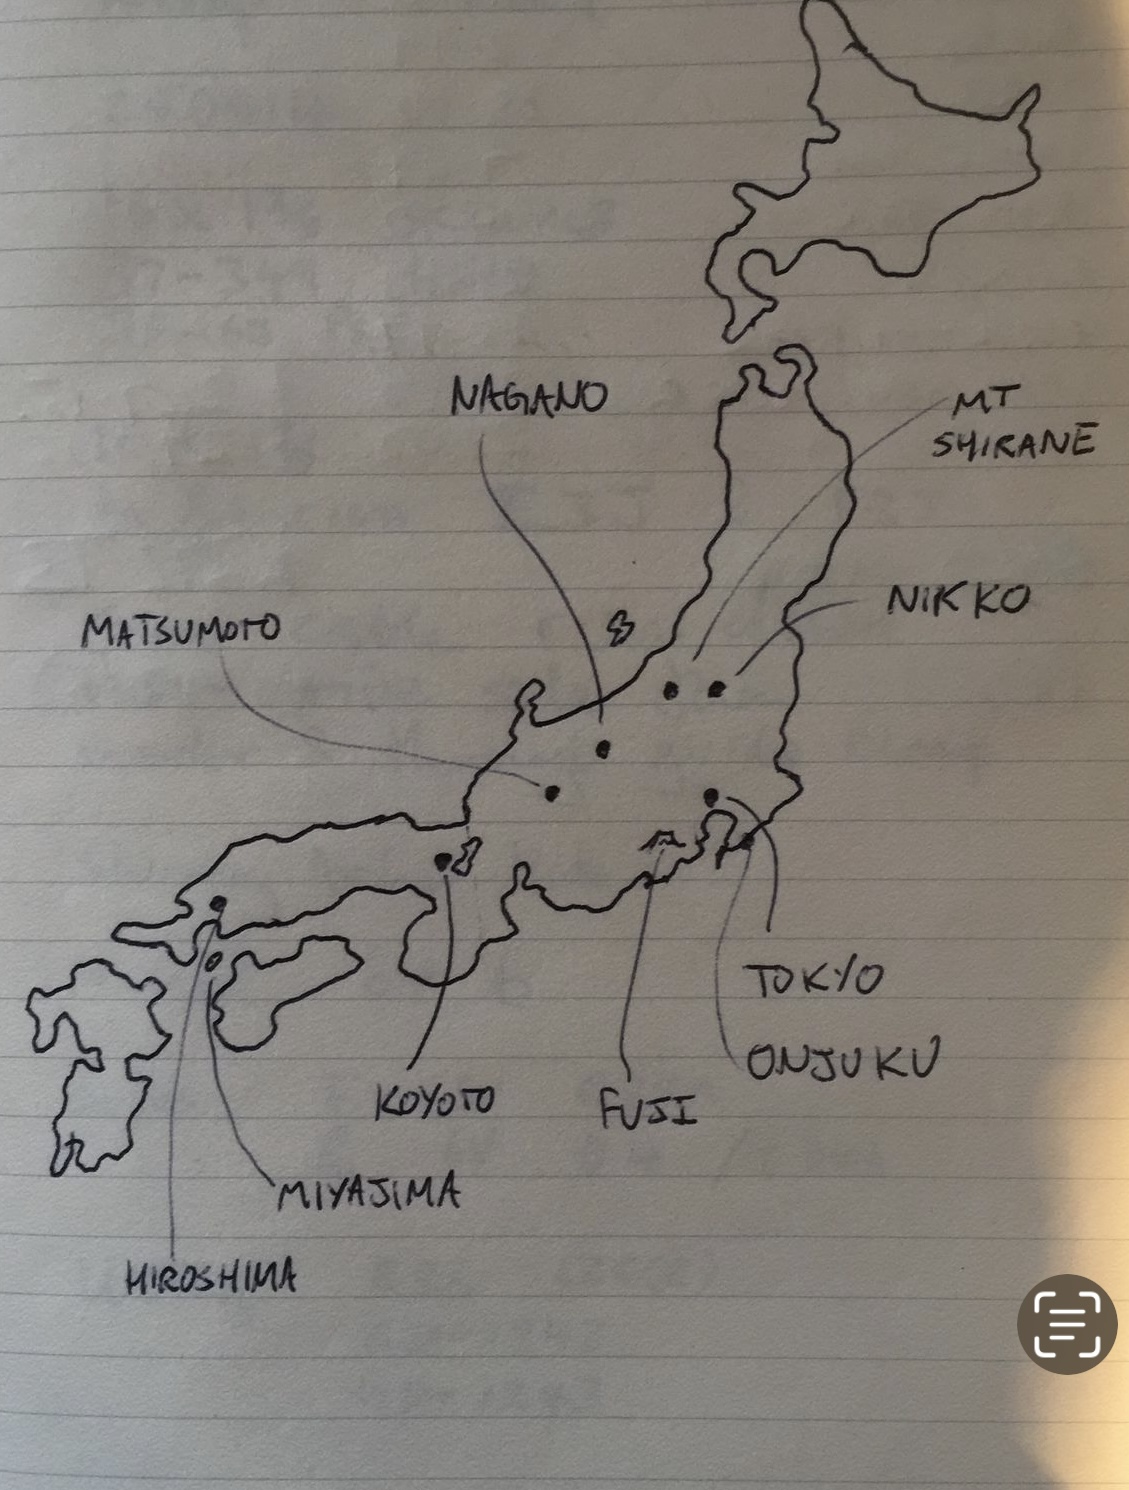 NAGANO
MT
SHIRANE
NIKKO
MATSUMOTO
TOKYO
ONJUKU
KOYOTO
FUJI
MIYAJIMA
HIROSHIMA